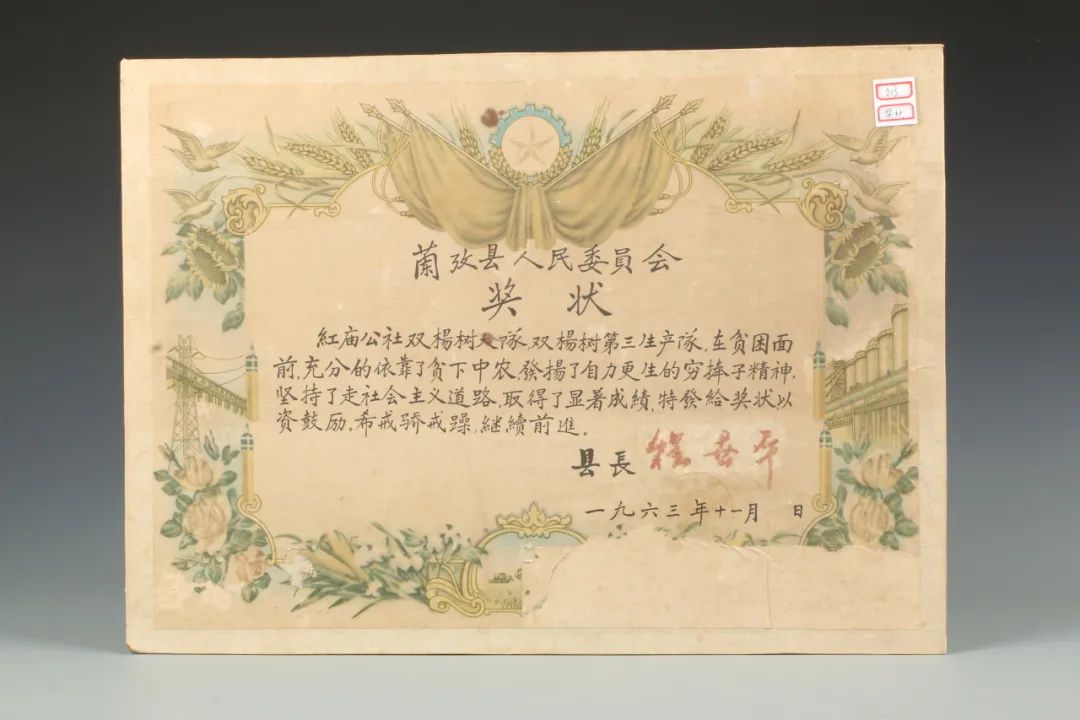 蘭攷县人民委員会
奖状
紅庙公社双楊树大隊双楊树第三生产隊,在贫困面
前,充分的依靠了贫下中农,發揚了自力更生的穷捧子精神,
坚持了走社会主义道路,取得了显著成績,特發给奖状以
资鼓励。希戒骄戒躁,継續前進。
县長
一九六三年十一月 日